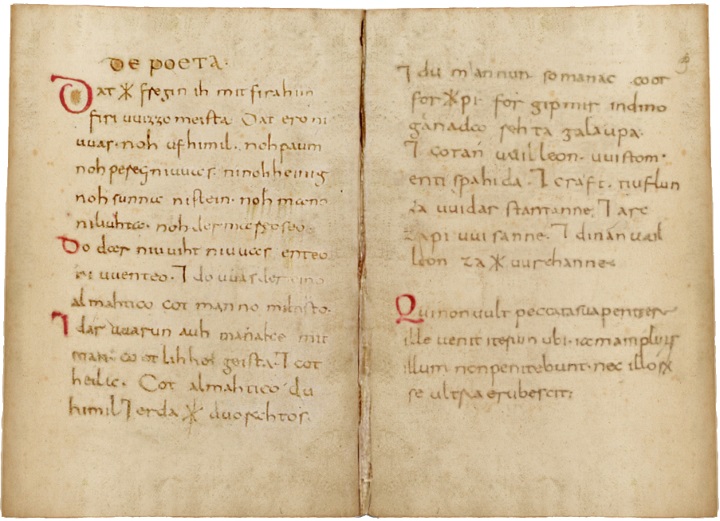 DE POETA·
Dat ᚼ fregin ih mit firahim
firi uuizzo meista· Dat ero ni
uuas· noh ufhimil· noh paum
noh pereg ni uuas· ninoh heinig
noh sunna nistein· noh mano
niliuhta· noh der mareo seo·
Do dar niuuiht niuuas enteo
ni uuenteo· ⁊ do uuas der eino
almahtico cot manno miltisto·
⁊ dar uuarun auh manake mit
man· cootlihhe geista· ⁊ cot
heilac· Cot almahtico du
himil ⁊ erda ᚼ uuorahtos·
⁊ du mannun somanac coot
forᚼpi· for gipmir indino
ganada rehta galaupa·
⁊ cotan uuilleon· uuistom·
enti spahida· ⁊ craft· tiuflun
za uuidar stantanne· ⁊ arc
zapi uuisanne· ⁊ dinan uuil
leon za ᚼ uurchanne·
Qui non uult peccata sua penitere
ille uenit iterum ubi iam amplius
illum non penitebunt· nec illorum
se ultra erubescit;